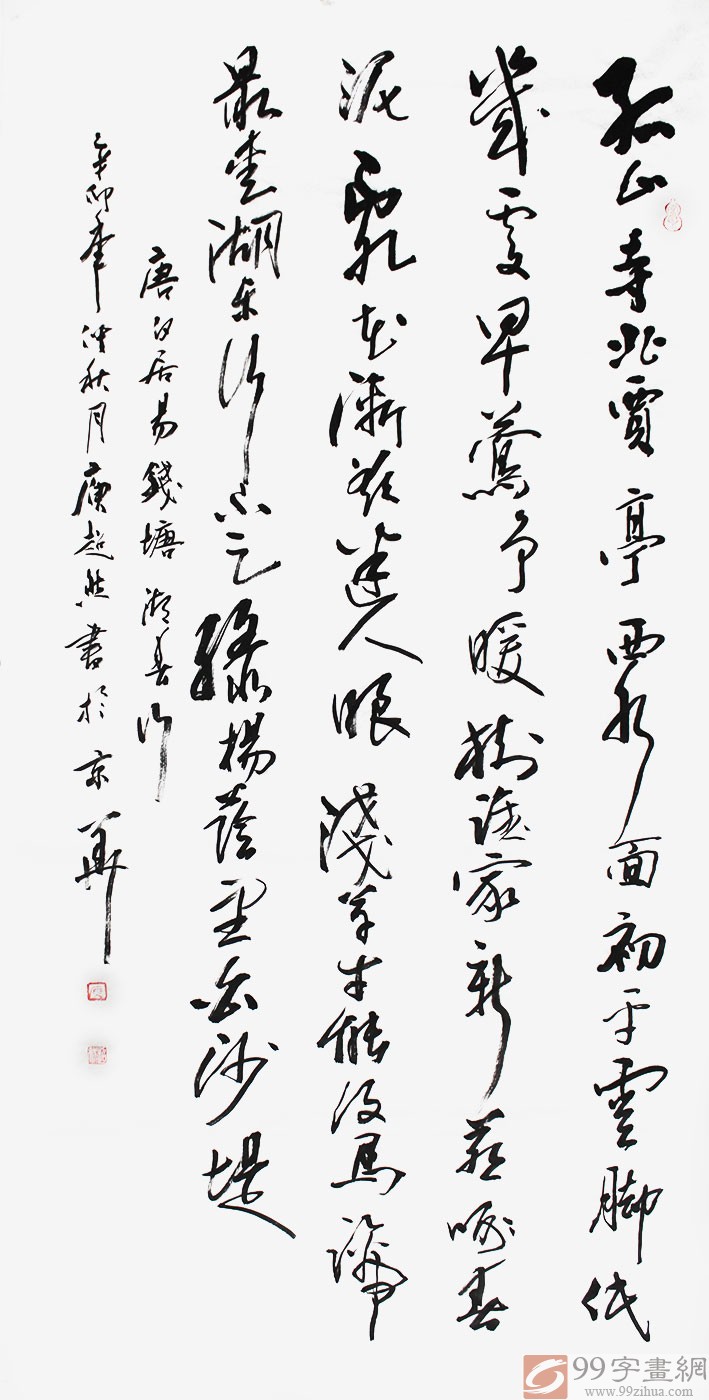 孤山寺北賈亭西水面初平雲脚低
幾處早鶯争暖樹誰家新燕啄春
泥亂花漸欲迷人眼淺草才能没馬蹄
最愛湖東行不足綠楊蔭里白沙堤
唐白居易錢塘湖春行
辛卯年仲秋月庾超然書於京華
99字畫網
www.99zihua.com